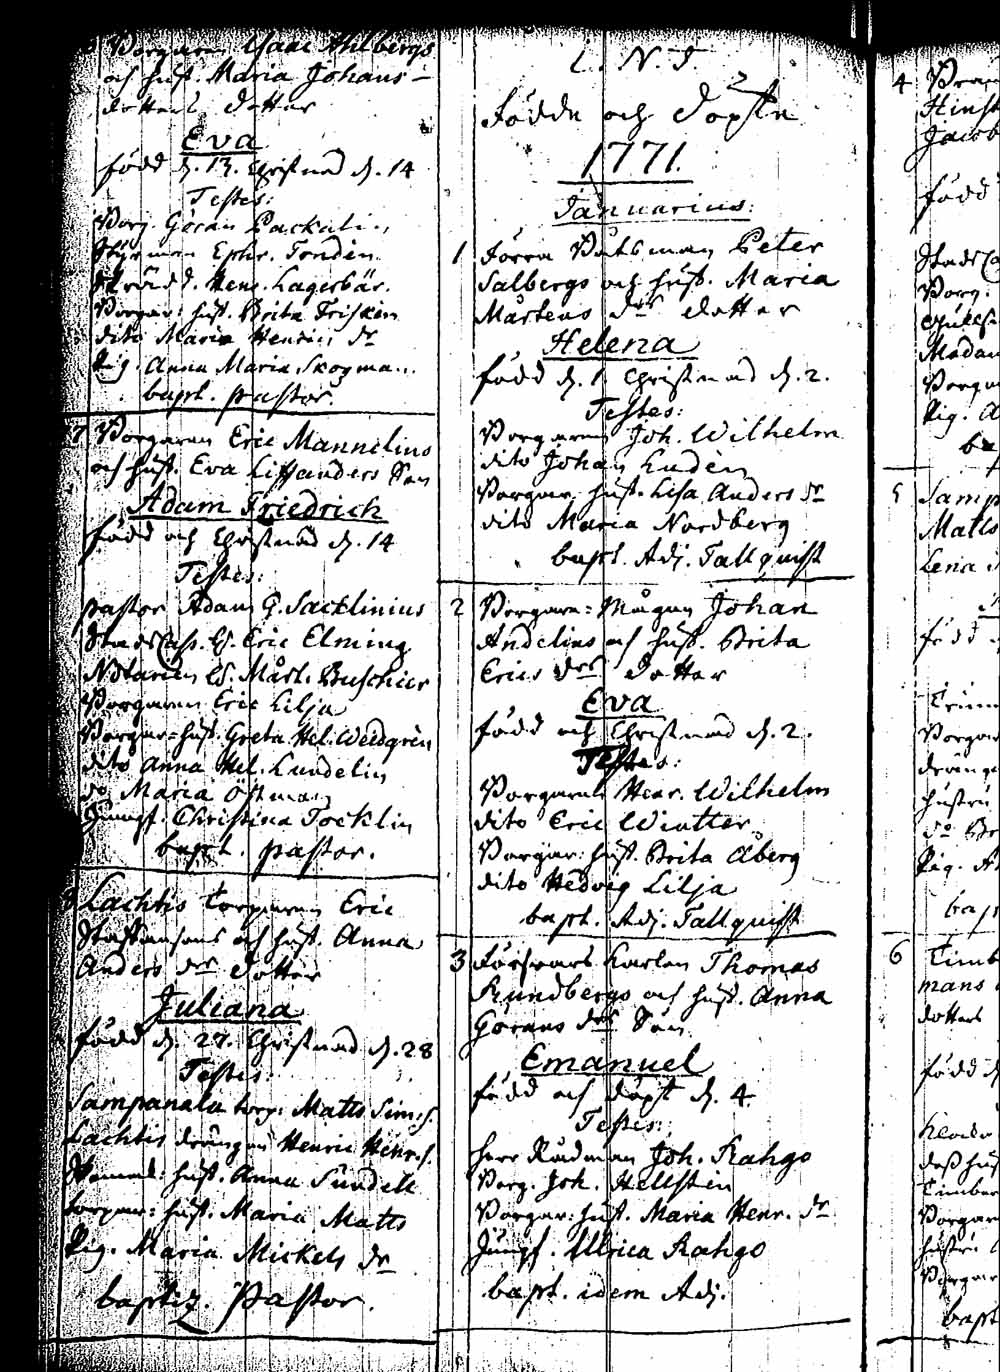 Borgaren Isaac Ahlbergs
och hust. Maria Johans-
dotters dotter
Eva
född d. 13. Christnad d. 14
Testes:
Borg. Göran Packalin
Styrman Ephr. Tondin
Skrädd. Henr. Lagerbär.
Borgar: hust. Brita Frisken
dito Maria Henrics dr
Pig. Anna Maria Skogman
bapt. pastor.
7 Borgaren Eric Mannelius
och hust. Eva Lissanders Son
Adam Friedrich
född och Christnad d. 14
Testes:
pastor Adam G. Sacklinius
Stads Cass. H. Eric Elming
Notarien H. Mårt. Buschier
Borgaren Eric Lilja
Borgar=hust. Greta Hel. Weedgrén
dito Anna Hel. Lundelin
do Maria Östman
Jungf. Christina Tocklin
bapt. pastor.
8 Lachtis Torparen Eric
Staffansons och hust. Anna
Anders dr dotter
Juliana
född d. 27. Christnad d. 28
Testes:
Sampanala torp. Matts Sims.
Lachtis drängen Henric Henr. s.
hust. Anna Sundell
torpar: hust. Maria Matts
Pig. Maria Mickels dr
baptiz. Pastor.
I. N. J.
Födde och Döpte
1771.
Januarius.
1 Förra Båtsman Peter
Salbergs och hust. Maria
Mårtens drs dotter
Helena
född d. 1. Christnad d. 2.
Testes:
Borgaren Joh. Wilhelm
dito Johan Ludén
Borgar. hust. Lisa Anders dr
dito Maria Nordberg
bapt. Adj. Tallquist
2 Borgare=Mågen Johan
Andelins och hust. Brita
Erics drs dotter
Eva
född och Christnad d. 2.
Testes:
Borgaren Henr. Wilhelm
dito Eric Wintter
Borgar: hust. Brita Åberg
dito Hedvig Lilja
bapt. Adj. Tallquist
3 Försvars Karlen Thomas
Kundbergs och hust. Anna
Görans drs Son
Emanuel
född och döpt d. 4.
Testes:
Herr Rådman Joh. Kahgo
Borg. Joh. Hellsten
Borgar: hust. Maria Henr. dr
Jungf. Ulrica Kahgo
bapt. idem Adj.
4
Jacob
född
Stads
Borg.
Madam
Borgar
Pig. A
5 Samp
Matts
Lena
född
Borgar
dränge
hustru
do Br
Pig. A
bapt
6 Timb
mans
dotters
född d
Timber
Borgar
hustru
Borgar
bapt